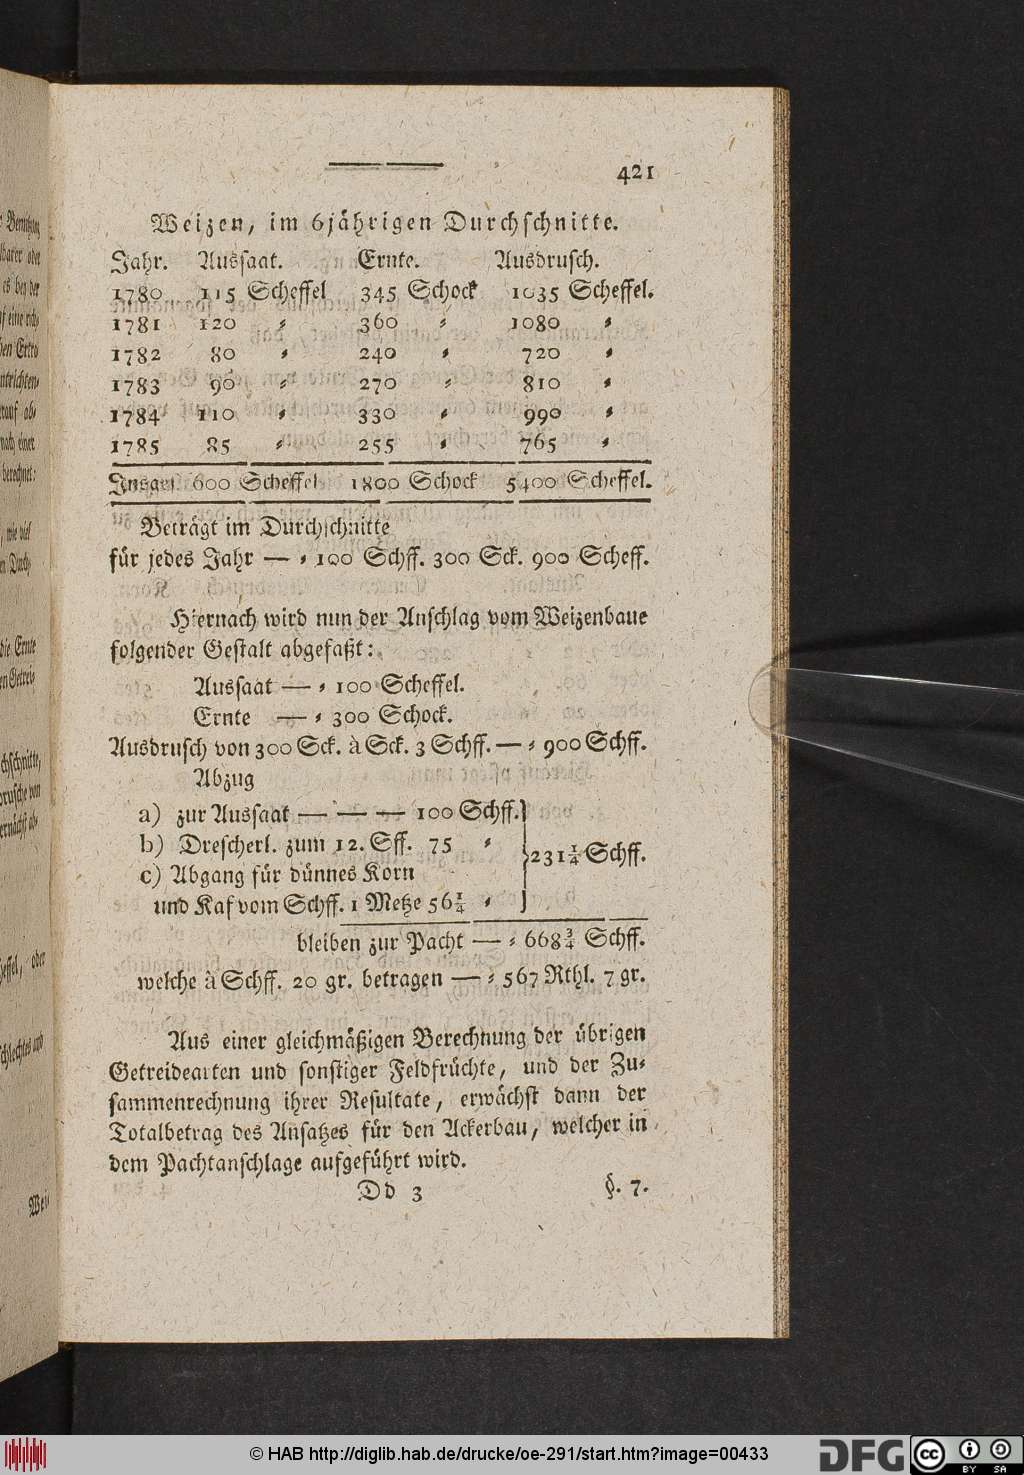 421
Weizen, im 6jährigen Durchschnitte.
Jahr. Aussaat. Ernte. Ausdrusch.
1780 115 Scheffel 345 Schock 1035 Scheffel.
1781 120 〃 360 〃 1080 〃
1782 80 〃 240 〃 720 〃
1783 90 〃 270 〃 810 〃
1784 110 〃 330 〃 990 〃
1785 85 〃 255 〃 765 〃
Insges. 600 Scheffel 1800 Schock 5400 Scheffel.
Beträgt im Durchschnitte
für jedes Jahr — 〃 100 Schff. 300 Sck. 900 Scheff.
Hiernach wird nun der Anschlag vom Weizenbaue
folgender Gestalt abgefaßt:
Aussaat — 〃 100 Scheffel.
Ernte — 〃 300 Schock.
Ausdrusch von 300 Sck. à Sck. 3 Schff. — 〃 900 Schff.
Abzug
a) zur Aussaat — — — 100 Schff.
b) Drescherl. zum 12. Sff. 75 〃 } 231¼ Schff.
c) Abgang für dünnes Korn
und Kaf vom Schff. 1 Metze 56¼ 〃
bleiben zur Pacht — 〃 668¾ Schff.
welche à Schff. 20 gr. betragen — 〃 567 Rthl. 7 gr.
Aus einer gleichmäßigen Berechnung der übrigen
Getreidearten und sonstiger Feldfrüchte, und der Zu-
sammenrechnung ihrer Resultate, erwächst dann der
Totalbetrag des Ansatzes für den Ackerbau, welcher in
dem Pachtanschlage aufgeführt wird.
Dd 3 §. 7.
© HAB http://diglib.hab.de/drucke/oe-291/start.htm?image=00433
DFG
cc BY SA